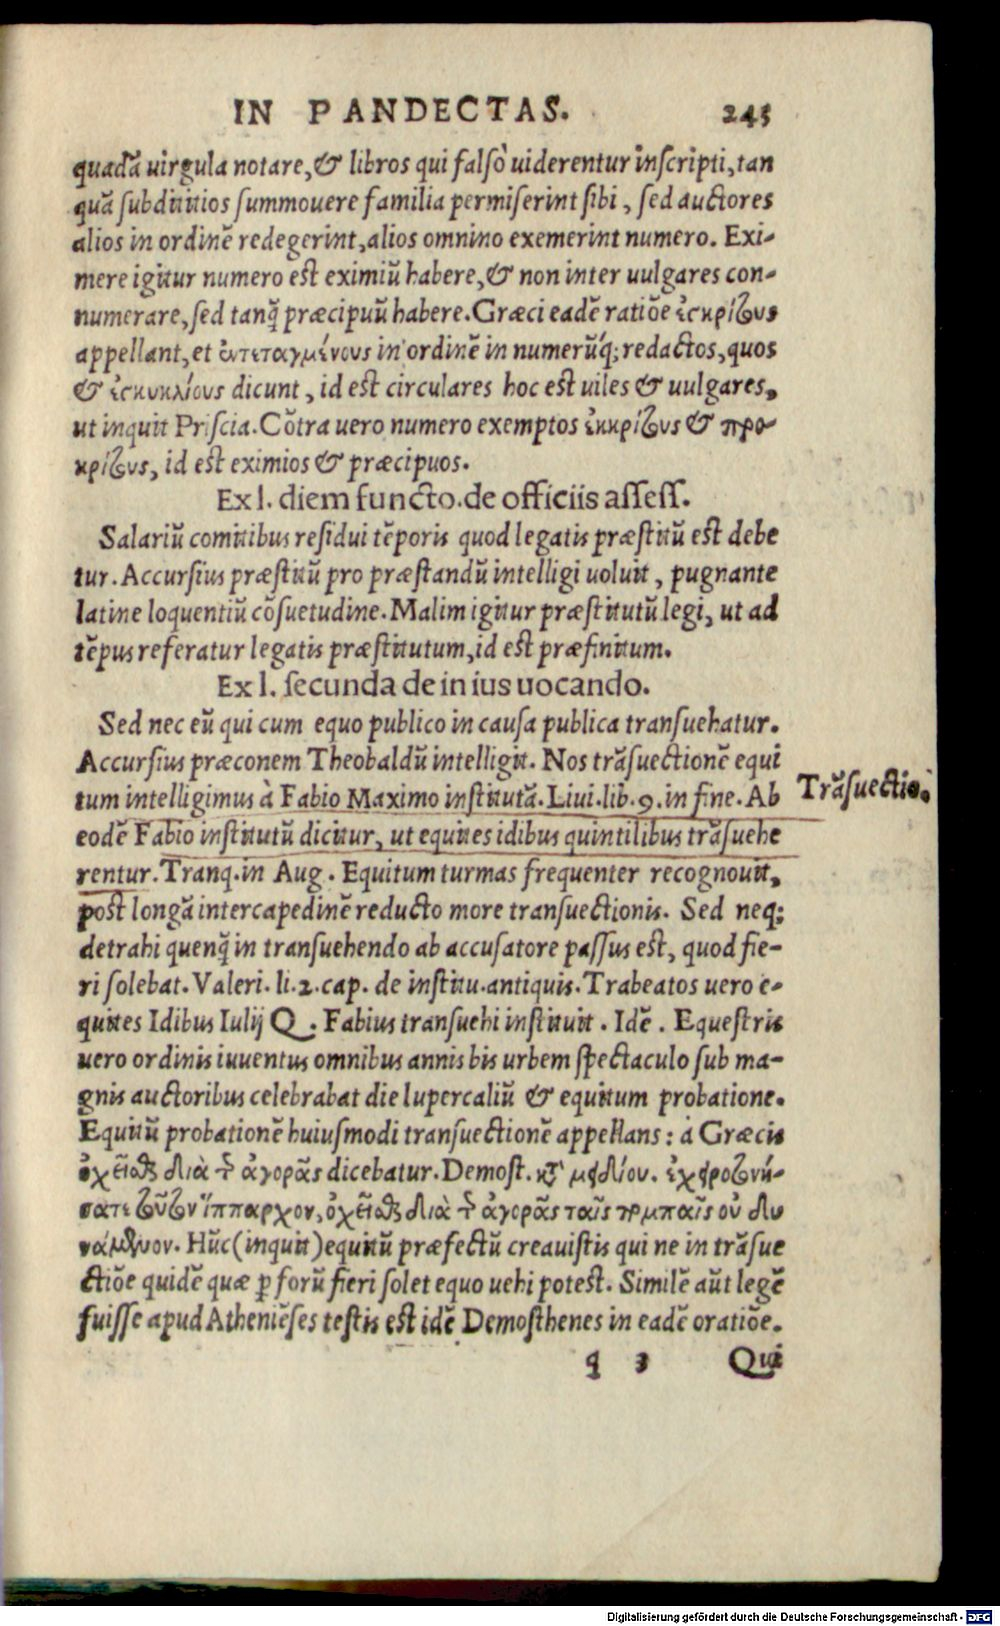 IN PANDECTAS. 245
quadã uirgula notare, & libros qui falsò uiderentur inscripti, tan
quã subdititios summouere familia permiserint sibi, sed auctores
alios in ordinẽ redegerint, alios omnino exemerint numero. Exi-
mere igitur numero est eximiũ habere, & non inter uulgares con-
numerare, sed tanq̃ præcipuũ habere. Græci eadẽ ratiõe ἐκκρίτους
appellant, et ἐντεταγμένους in ordinẽ in numerũq; redactos, quos
& ἐγκυκλίους dicunt, id est circulares hoc est uiles & uulgares,
ut inquit Priscia. Cõtra uero numero exemptos ἐκκρίτους & προ-
κρίτους, id est eximios & præcipuos.
Ex l. diem functo. de officiis assess.
Salariũ comitibus residui tẽporis quod legatis præstitũ est debe
tur. Accursius præstitũ pro præstandũ intelligi uoluit, pugnante
latine loquentiũ cõsuetudine. Malim igitur præstitutũ legi, ut ad
tẽpus referatur legatis præstitutum, id est præfinitum.
Ex l. secunda de in ius uocando.
Sed nec eũ qui cum equo publico in causa publica transuehatur.
Accursius præconem Theobaldũ intelligit. Nos trãsuectionẽ equi
tum intelligimus à Fabio Maximo institutã. Liui. lib. 9. in fine. Ab
Trãsuectio.
eodẽ Fabio institutũ dicitur, ut equites idibus quintilibus trãsuehe
rentur. Tranq. in Aug. Equitum turmas frequenter recognouit,
post longã intercapedinẽ reducto more transuectionis. Sed neq;
detrahi quenq̃ in transuehendo ab accusatore passus est, quod fie-
ri solebat. Valeri. li. 2. cap. de institu. antiquis. Trabeatos uero e-
quites Idibus Iulij Q. Fabius transuehi instituit. Idẽ. Equestris
uero ordinis iuuentus omnibus annis bis urbem spectaculo sub ma-
gnis auctoribus celebrabat die lupercaliũ & equitum probatione.
Equitũ probationẽ huiusmodi transuectionẽ appellans: à Græcis
ὀχεῖσθαι διὰ τ̃ ἀγορᾶς dicebatur. Demost. κτ̃ μειδίου. ἐχειροτονή-
σατε τοῦτον ἵππαρχον, ὀχεῖσθαι διὰ τ̃ ἀγορᾶς ταῖς πομπαῖς οὐ δυ
νάμενον. Hũc (inquit) equitũ præfectũ creauistis qui ne in trãsue
ctiõe quidẽ quæ ꝑ forũ fieri solet equo uehi potest. Similẽ aũt legẽ
fuisse apud Atheniẽses testis est idẽ Demosthenes in eadẽ oratiõe.
q 3 Qui
Digitalisierung gefördert durch die Deutsche Forschungsgemeinschaft - DFG